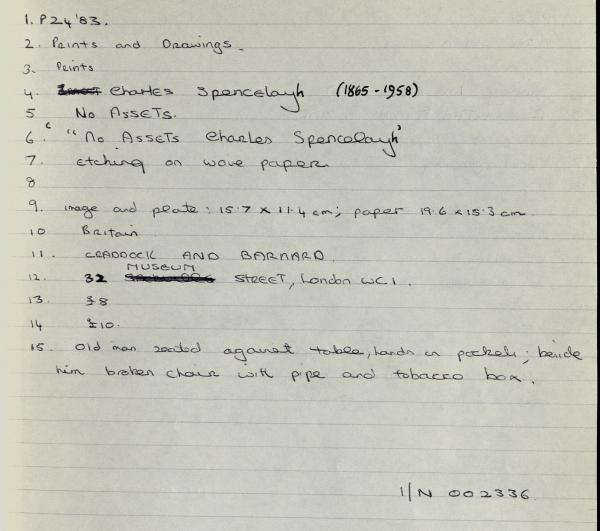 1. P24'83.
2. Prints and Drawings.
3. Prints
4. Charles Spencelayh (1865-1958)
5 No Assets.
6. "No Assets Charles Spencelayh"
7. etching on wove paper.
8
9. image and plate: 15.7 x 11.4 cm; paper 19.6 x 15.3 cm.
10 Britain
11. CRADDOCK AND BARNARD.
12. 32 MUSEUM STREET, London WC1.
13. £8
14 £10.
15. Old man seated against table, hands in pockets; beside
him broken chair with pipe and tobacco box.
I/N 002336